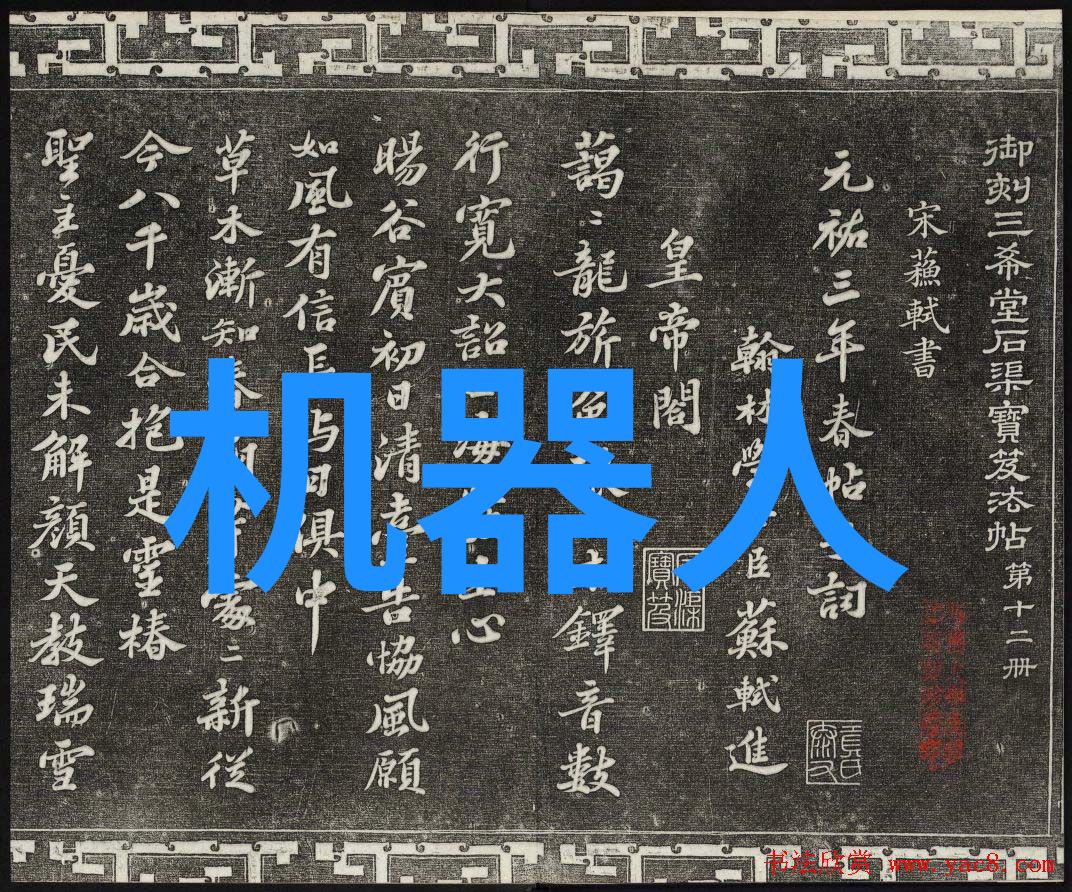 御刻三希堂石渠寶笈法帖第十二册
宋蘓軾書
元祐三年春帖詞
翰林學臣蘇軾進
皇帝閤
藹〻龍旂色鐸音數
行寬大詔海心
暘谷賓初日清臺告協風願
如風有信長与日俱中
草木漸知春萌芽處〻新從
今八千歲合抱是靈椿
聖主憂民未解顏天教瑞雪
石渠寶笈
机器人
书法欣赏 www.yac8.com